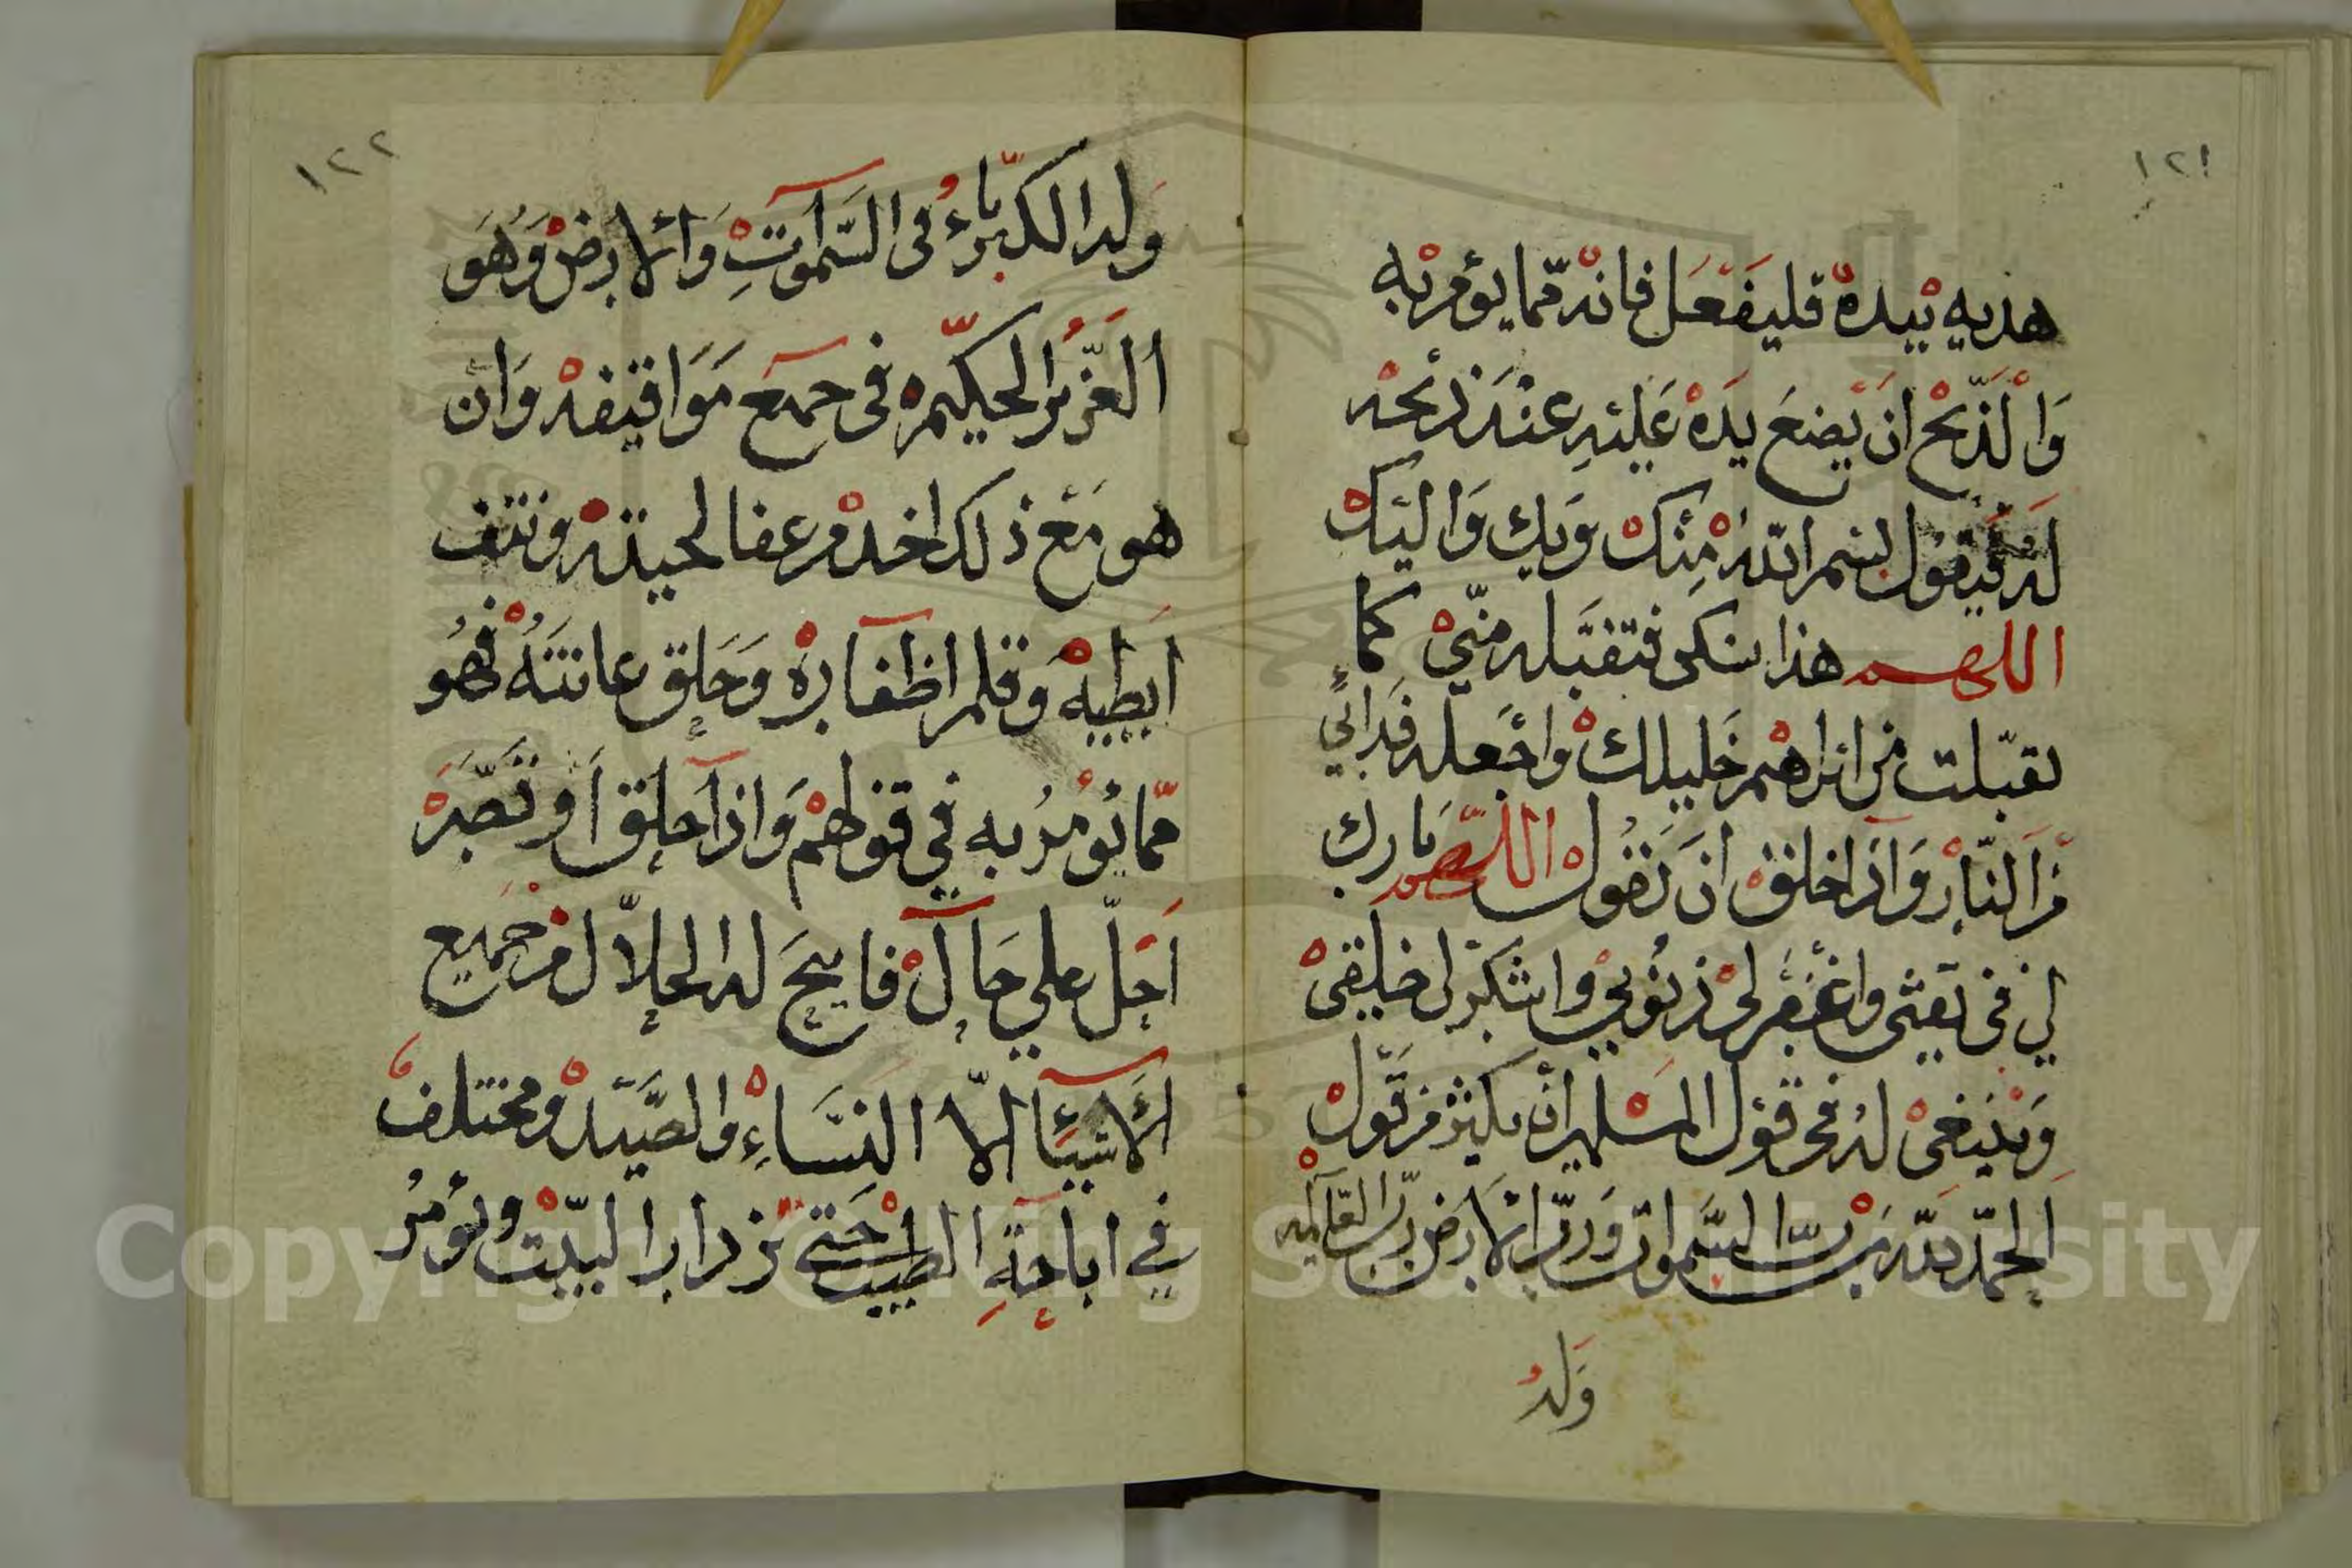 ١٢١
هديه بيده فليفعل فانه مما يؤمر به
وَالذبح ان يضع يده عليه عند ذبحه
له فيقول بسم الله منك وبك واليك
اللهم هذا نسكى فتقبله منّي كما
تقبّلت من ابراهيم خليلك واجعله فدائي
من النّار واذا خلق ان يقول اللهم بارك
لي فى تفثى واغفر لى ذنوبي واشكر لى خليقى
وينبغى له فى قول المسلمين ان يكثر من قول
الحمد لله ربّ السموات وربّ الارض ربّ العالمين
وَلهُ
١٢٢
وله الكبرياء فى السموت والارض وهو
العزيز الحكيم فى جميع مواقيفه وان
هو مع ذلك اخذ وعفا لحيته ونتف
ابطيه وقلم اظفاره وحلق عانته فهو
ممّا يؤمر به في قولهم واذا حلق او قصّر
احلّ على حال فابيح له الحلال من جميع
الاشيئا الاّ النساء والصيد ومختلف
في اباحة الطيب حتى يزدار البيت ويؤمر
Copyright © King Saud University